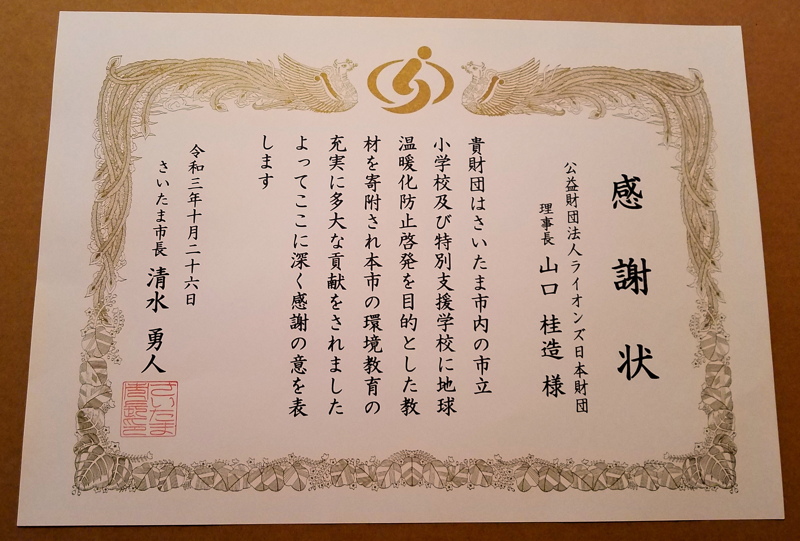 感謝状
公益財団法人ライオンズ日本財団
理事長 山口 桂造 様
貴財団はさいたま市内の市立
小学校及び特別支援学校に地球
温暖化防止啓発を目的とした教
材を寄附され本市の環境教育の
充実に多大な貢献をされました
よってここに深く感謝の意を表
します
令和三年十月二十六日
さいたま市長 清水 勇人
さいたま
市長之印